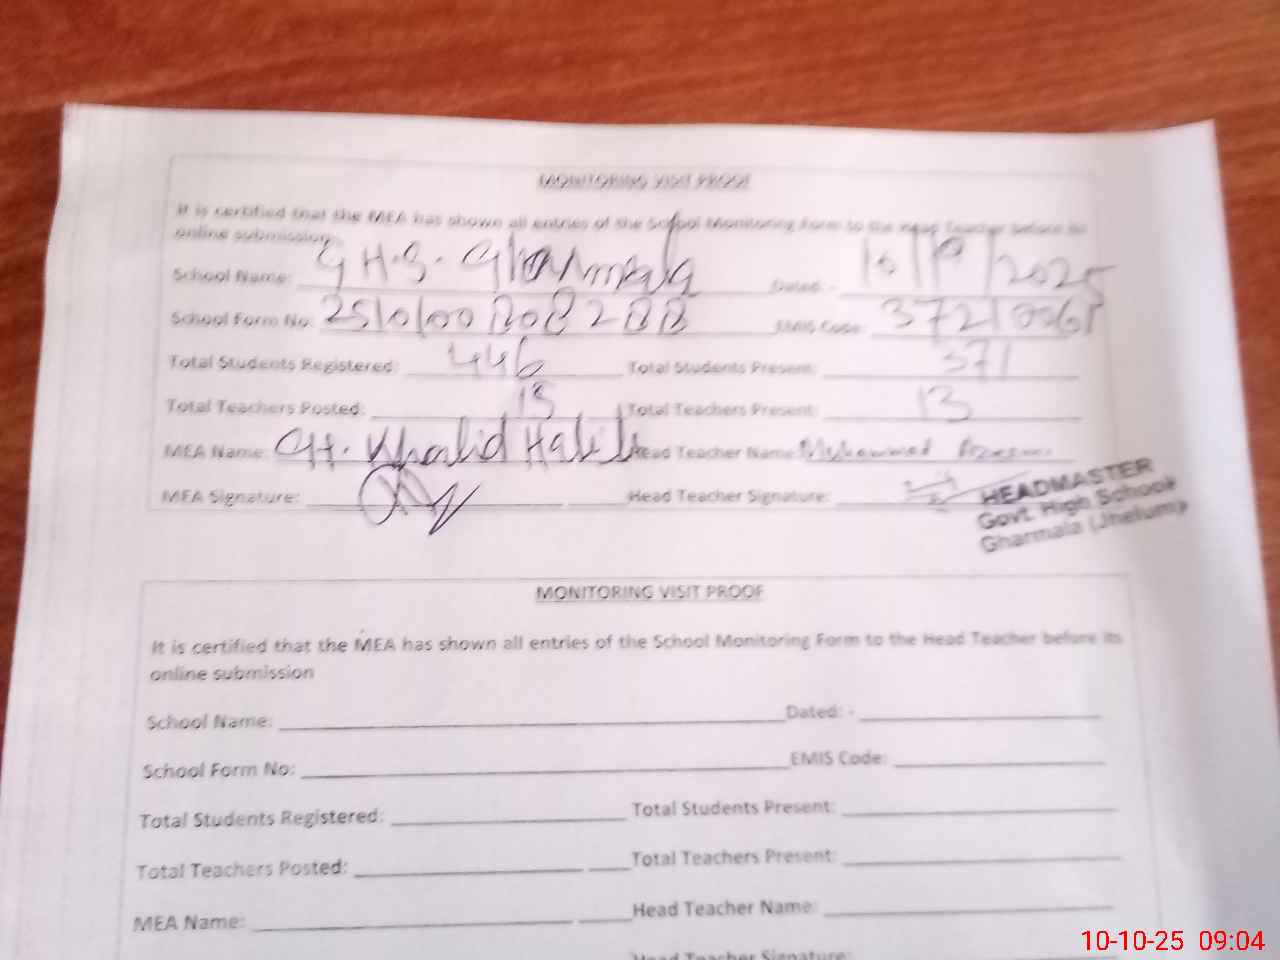 MONITORING VISIT PROOF
It is certified that the MEA has shown all entries of the School Monitoring Form to the Head Teacher before its
online submission
School Name: G.H.S. Gharmala Dated: - 10/10/2025
School Form No: EMIS Code:
Total Students Registered: 446 Total Students Present: 371
Total Teachers Posted: Total Teachers Present: 13
MEA Name: CH. Khalid Habib Head Teacher Name: Muhammad
MEA Signature: Head Teacher Signature:
HEADMASTER
Govt. High School
Gharmala (Jhelum)
MONITORING VISIT PROOF
It is certified that the MEA has shown all entries of the School Monitoring Form to the Head Teacher before its
online submission
School Name: Dated: -
School Form No: EMIS Code:
Total Students Registered: Total Students Present:
Total Teachers Posted: Total Teachers Present:
MEA Name: Head Teacher Name:
Head Teacher Signature:
10-10-25 09:04